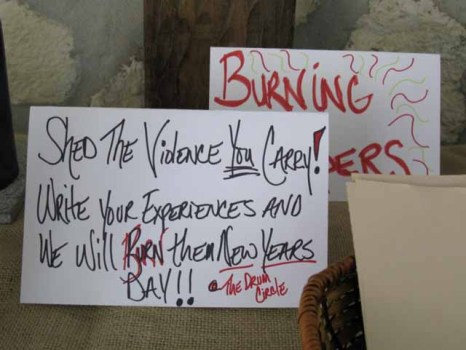 Shed The Violence You Carry!
Write Your Experiences and
We Will Burn them New Years
Day!! The Drum
Circle
Burning